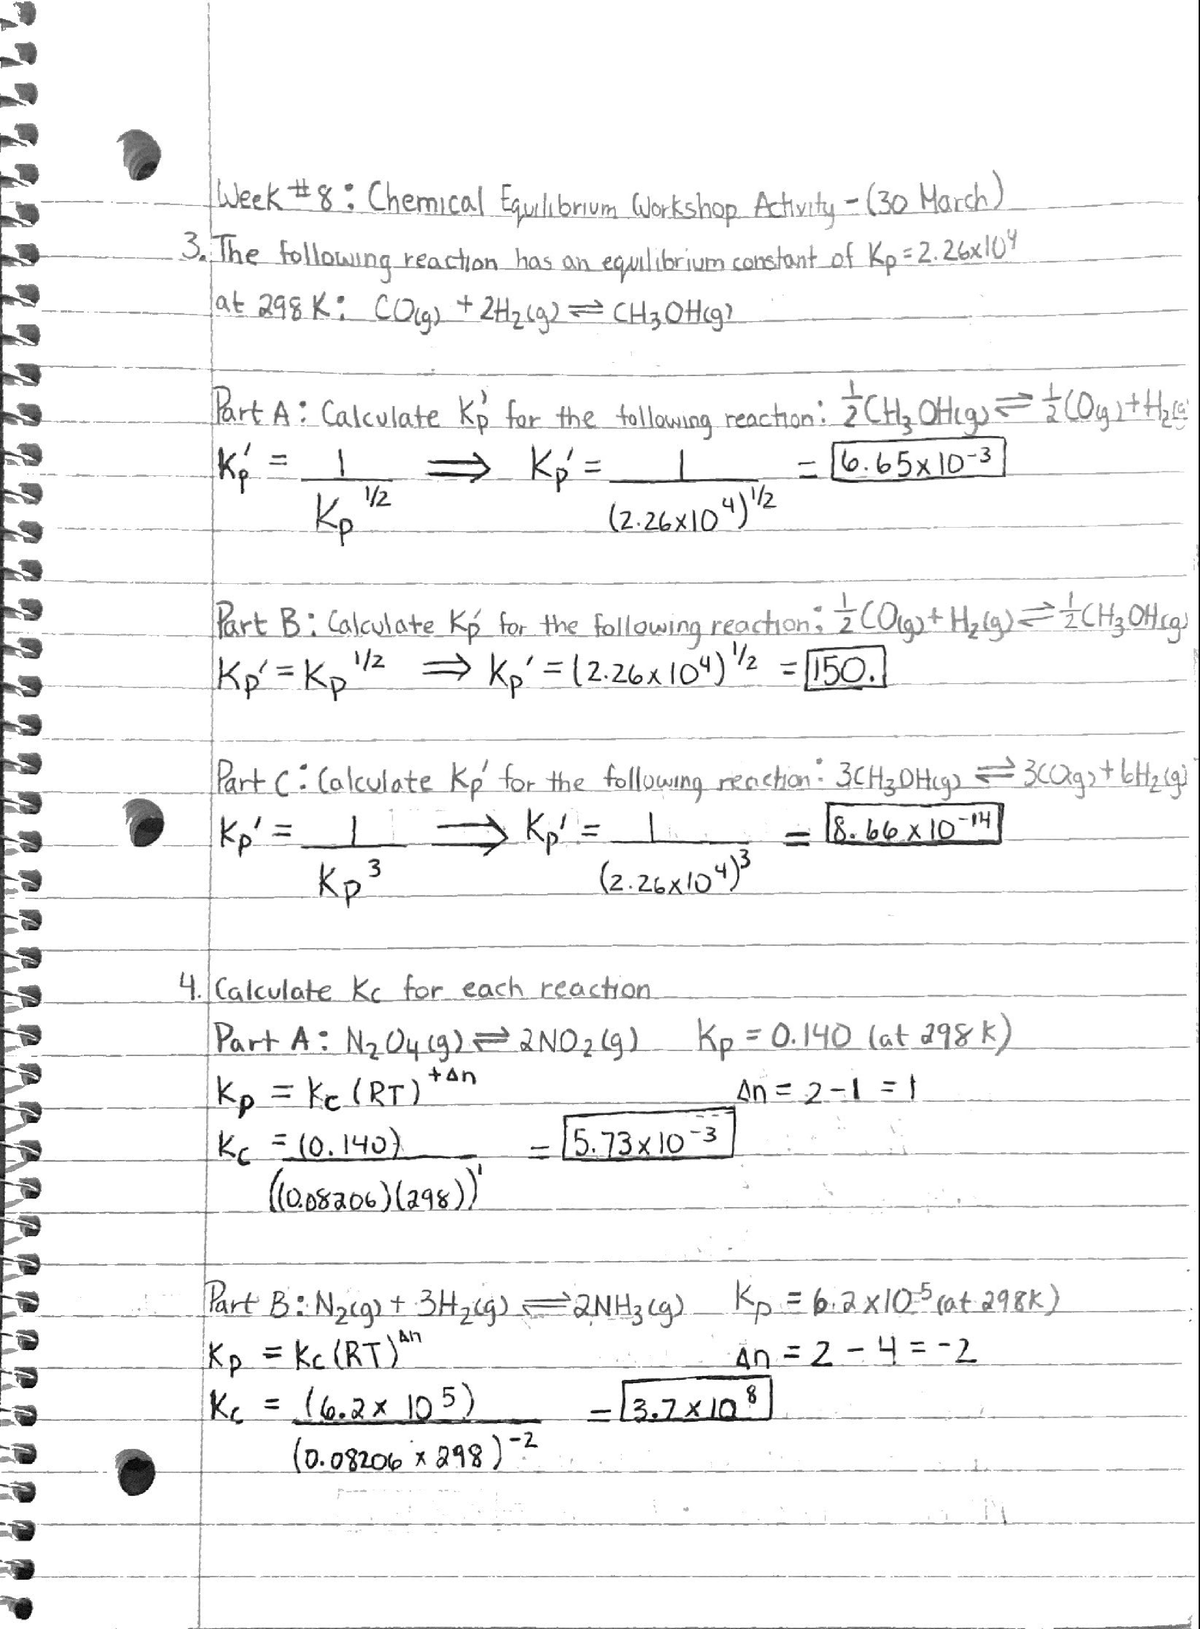 Week #8: Chemical Equilibrium Workshop Activity - (30 March)
3. The following reaction has an equilibrium constant of Kp = 2.26x10⁴
at 298 K: CO(g) + 2H₂(g) ⇌ CH₃OH(g)
Part A: Calculate Kp' for the following reaction: ½CH₃OH(g) ⇌ ½CO(g) + H₂(g)
Kp' = 1/Kp^1/2 ⟹ Kp' = 1/(2.26x10⁴)^1/2 = 6.65x10⁻³
Part B: Calculate Kp' for the following reaction: ½CO(g) + H₂(g) ⇌ ½CH₃OH(g)
Kp' = Kp^1/2 ⟹ Kp' = (2.26x10⁴)^1/2 = 150.
Part C: Calculate Kp' for the following reaction: 3CH₃OH(g) ⇌ 3CO(g) + 6H₂(g)
Kp' = 1/Kp³ ⟹ Kp' = 1/(2.26x10⁴)³ = 8.66x10⁻¹⁴
4. Calculate Kc for each reaction
Part A: N₂O₄(g) ⇌ 2NO₂(g) Kp = 0.140 (at 298 K)
Kp = Kc(RT)^+Δn Δn = 2-1 = 1
Kc = (0.140)/((0.08206)(298))¹ = 5.73x10⁻³
Part B: N₂(g) + 3H₂(g) ⇌ 2NH₃(g) Kp = 6.2x10⁵ (at 298K)
Kp = Kc(RT)^Δn Δn = 2-4 = -2
Kc = (6.2x10⁵)/(0.08206 x 298)⁻² = 3.7x10⁸